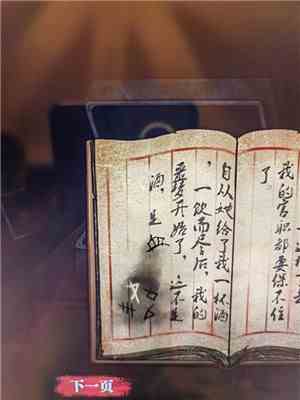 我的官职都要保不住
了
自从她给了我一杯酒
，一饮而尽后，我的
噩梦开始了，这不是
酒，是血
下一页